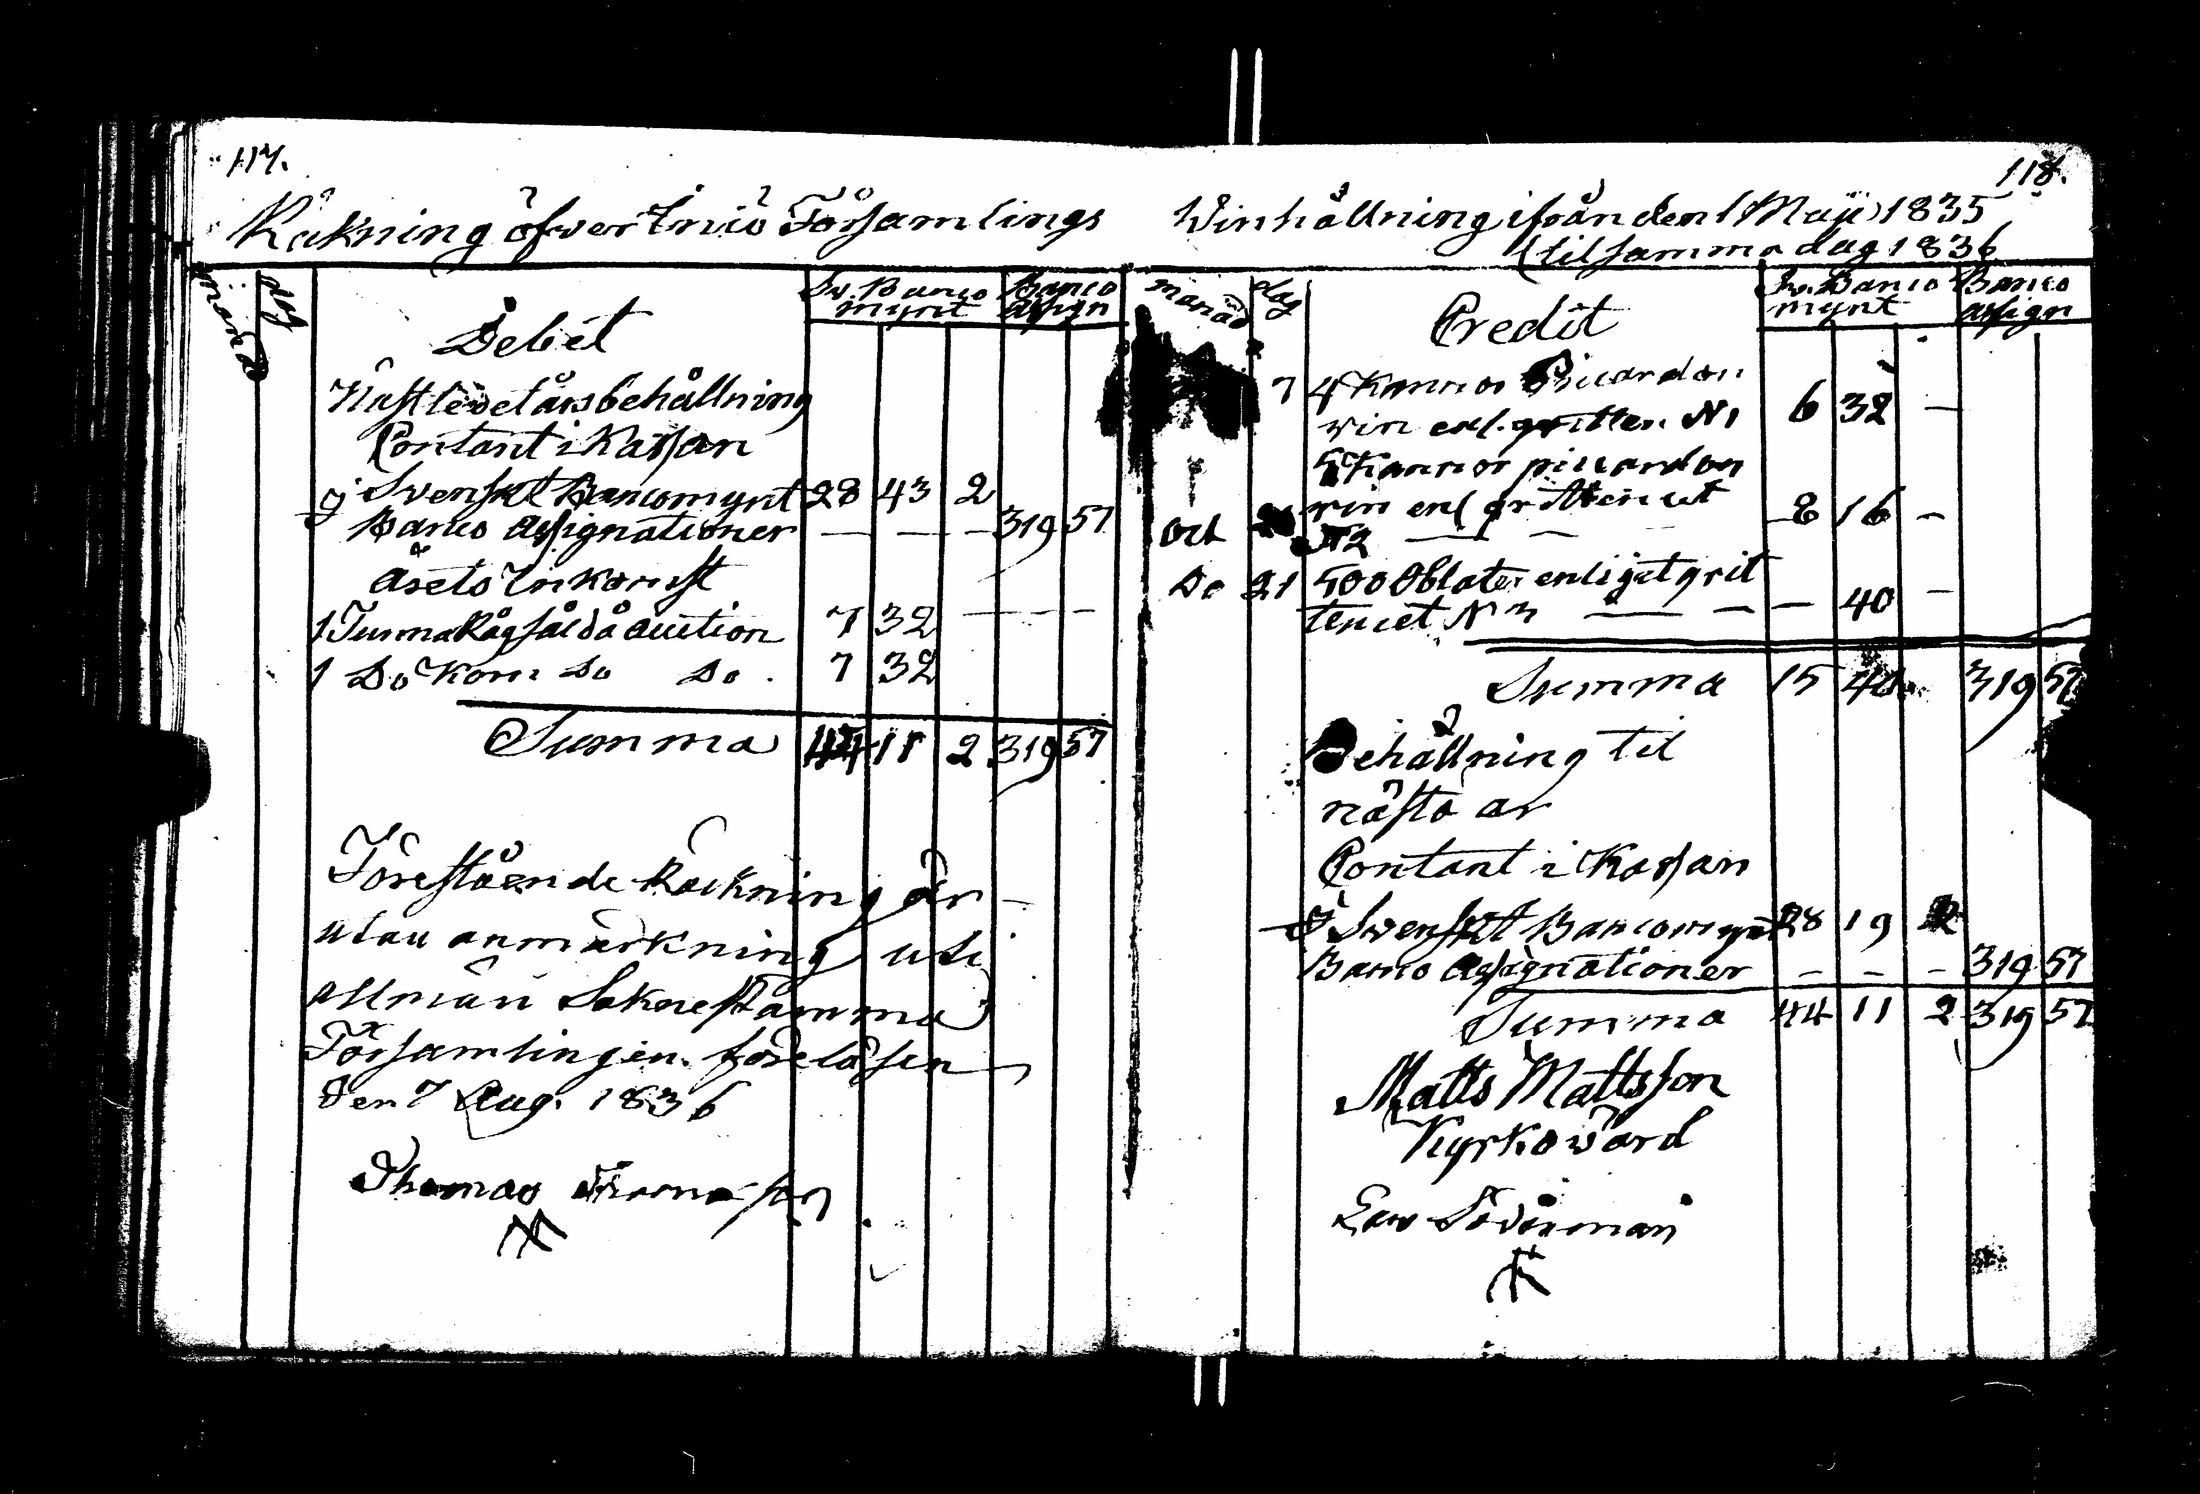 117.
Räkning öfver Iniö Församlings
månad
dag
Debet
Sv. Banco
mynt
Banco
assign
Näst ledet års behållning
Contant i Kassan
J Svenskt Bancomynt 28 43 2
Banco Assignationer — — — 319 57
Årets Inkomst
1 Tunna Råg såld å auction 7 32 — — —
1 Do Korn Do Do . 7 32
Summa 44 11 2 319 57
Förestående Räckning är
utan anmärkning uti
allmän Soknestämma
Församlingen föreläsen
Den 7 Aug. 1836
Thomas
118.
Winhållning ifrån den 1 Maji 1835
til samma dag 1836
månad
dag
Credit
Sv. Banco
mynt
Banco
assign
7 4 Kannor Picardon
win enl. qvitten. N1 6 32 —
5 Kannor piccardon
win enl qvittencet
oct N2 — — 8 16 —
Do 21 500 Oblater enligt qvit
tencet N 3 — — — 40 —
Summa 15 40 319 57
Behållning til
nästa ar
Contant i Kassan
J Svenskt Bancomynt 28 19 2
Banco Assignationer — — — 319 57
Summa 44 11 2 319 57
Matts Mattsson
Kyrkovärd